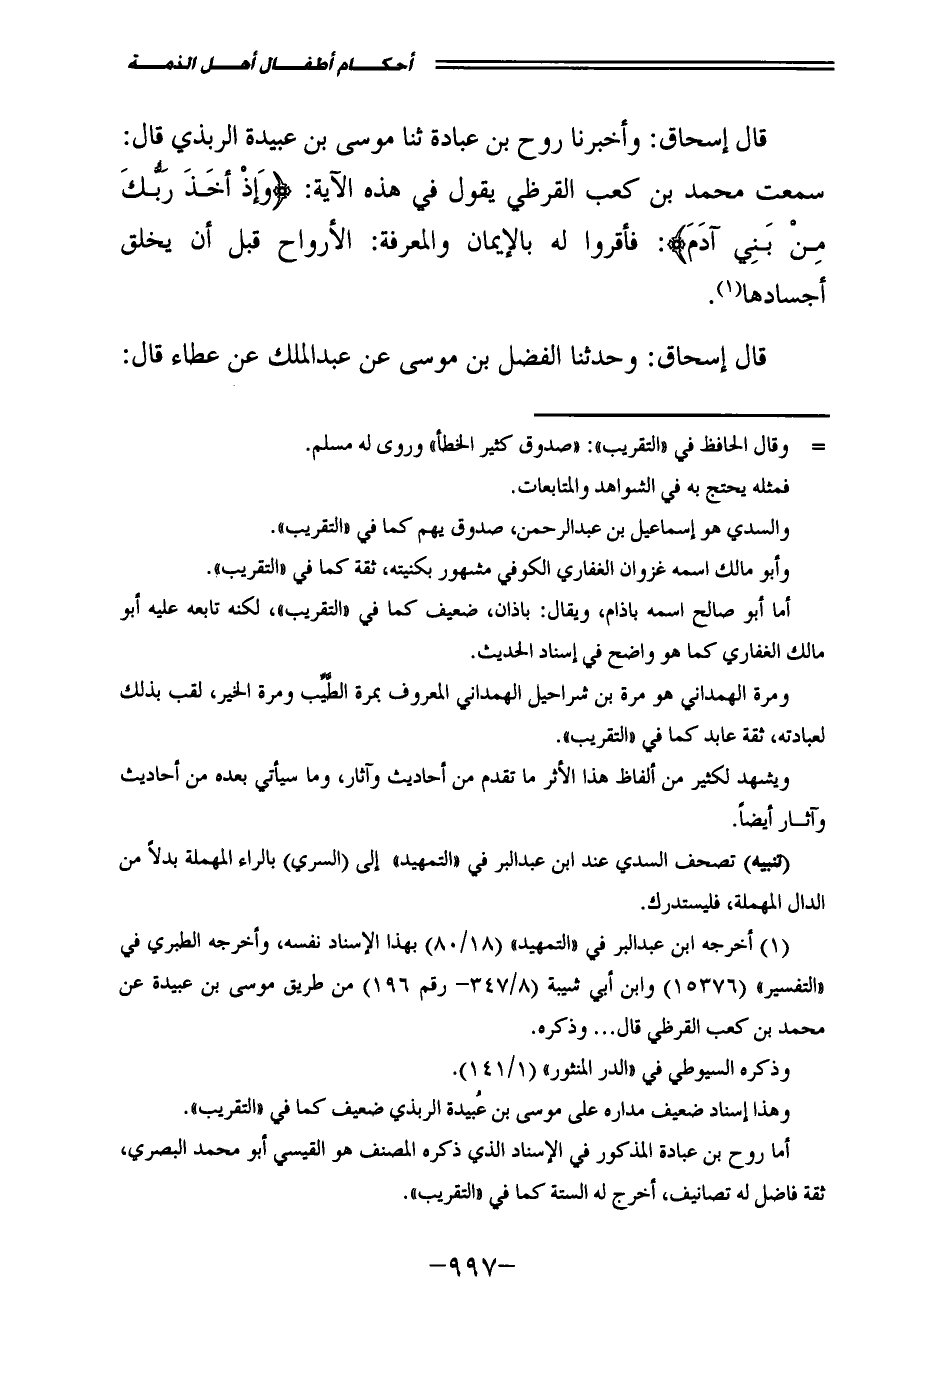 أحكـــام أطفـــال أهـــل الذمـــة
قال إسحاق: وأخبرنا روح بن عبادة ثنا موسى بن عبيدة الربذي قال:
سمعت محمد بن كعب القرظي يقول في هذه الآية: ﴿وَإِذْ أَخَـذَ رَبُّـكَ
مِـنْ بَـنِي آدَمَ﴾: فأقروا له بالإيمان والمعرفة: الأرواح قبل أن يخلق
أجسادها(١).
قال إسحاق: وحدثنا الفضل بن موسى عن عبدالملك عن عطاء قال:
= وقال الحافظ في «التقريب»: «صدوق كثير الخطأ» وروى له مسلم.
فمثله يحتج به في الشواهد والمتابعات.
والسدي هو إسماعيل بن عبدالرحمن، صدوق يهم كما في «التقريب».
وأبو مالك اسمه غزوان الغفاري الكوفي مشهور بكنيته، ثقة كما في «التقريب».
أما أبو صالح اسمه باذام، ويقال: باذان، ضعيف كما في «التقريب»، لكنه تابعه عليه أبو
مالك الغفاري كما هو واضح في إسناد الحديث.
ومرة الهمداني هو مرة بن شراحيل الهمداني المعروف بمرة الطَّيِّب ومرة الخير، لقب بذلك
لعبادته، ثقة عابد كما في «التقريب».
ويشهد لكثير من ألفاظ هذا الأثر ما تقدم من أحاديث وآثار، وما سيأتي بعده من أحاديث
وآثــار أيضاً.
(تنبيه) تصحف السدي عند ابن عبدالبر في «التمهيد» إلى (السري) بالراء المهملة بدلاً من
الدال المهملة، فليستدرك.
(١) أخرجه ابن عبدالبر في «التمهيد» (٨٠/١٨) بهذا الإسناد نفسه، وأخرجه الطبري في
«التفسير» (١٥٣٧٦) وابن أبي شيبة (٣٤٧/٨– رقم ١٩٦) من طريق موسى بن عبيدة عن
محمد بن كعب القرظي قال... وذكره.
وذكره السيوطي في «الدر المنثور» (١٤١/١).
وهذا إسناد ضعيف مداره على موسى بن عُبيدة الربذي ضعيف كما في «التقريب».
أما روح بن عبادة المذكور في الإسناد الذي ذكره المصنف هو القيسي أبو محمد البصري،
ثقة فاضل له تصانيف، أخرج له الستة كما في «التقريب».
–٩٩٧–